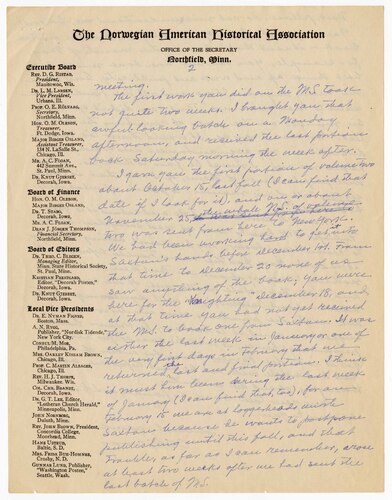 The Norwegian American Historical Association
OFFICE OF THE SECRETARY
Northfield, Minn.
2
Executive Board
REV. D. G. RISTAD,
President,
Manitowoc, Wis.
DR. L. M. LARSON,
Vice President,
Urbana, Ill.
PROF. O. E. RÖLVAAG,
Secretary,
Northfield, Minn.
HON. O. M. OLESON,
Treasurer,
Ft. Dodge, Iowa.
MAJOR BIRGER OSLAND,
Assistant Treasurer,
134 N. LaSalle St.,
Chicago, Ill.
MR. A. C. FLOAN,
442 Summit Ave.,
St. Paul, Minn.
DR. KNUT GJERSET,
Decorah, Iowa.
Board of Finance
HON. O. M. OLESON,
MAJOR BIRGER OSLAND,
DR. T. STABO,
Decorah, Iowa.
MR. A. C. FLOAN,
DEAN J. JÖRGEN THOMPSON,
Financial Secretary,
Northfield, Minn.
Board of Editors
DR. THEO. C. BLEGEN,
Managing Editor,
Minn. State Historical Society,
St. Paul, Minn.
KRISTIAN PRESTGARD,
Editor, "Decorah Posten,"
Decorah, Iowa.
DR. KNUT GJERSET,
Decorah, Iowa.
Local Vice Presidents
Boston, Mass.
A. N. RYGG,
Publisher, "Nordisk Tidende,"
New York City.
Philadelphia, Pa.
MRS. OAKLEY KISSAM BROWN,
Chicago, Ill.
PROF. C. MARTIN ALSAGER,
Chicago, Ill.
REV. H. J. THORPE,
Milwaukee, Wis.
COL. CHR. BRANDT,
Decorah, Iowa.
DR. G. T. LEE, Editor,
"Lutheran Church Herald,"
Minneapolis, Minn.
Duluth, Minn.
REV. JOHN BROWN, President,
Concordia College,
Moorhead, Minn.
HANS USTRUD,
Baltic, S. D.
Crosby, N. D.
GUNNAR LUND, Publisher,
"Washington Posten,"
Seattle, Wash.
meeting.
The first work you did on the MS. took
not quite two weeks. I brought you that
awful looking batch on a Monday
afternoon, and received the last portion
back Saturday morning the week after.
I gave you the first portion of volume two
about October 15, last fall (I can find that
date if I look for it), and on or about
November 25, the whole MS. of volume
two was sent from here to New York.
We had been working hard to get it into
Saltam's hands before December 1st. From
that time to December 20 none of us
saw anything of the book. You were
here for the meeting December 18, and
at that time you had not yet received
the MS. to book one from Saltam. It was
either the last week in January or one of
the very first days in February that we
returned the last and final portion. I think
it must have been during the last week
of January (I can find that, too), for on
February 15 we are at loggerheads
Saltam because he wants to postpone
publishing until this fall, and that
trouble, as far as I can remember, arose
at least two weeks after we had sent the
last batch of MS.